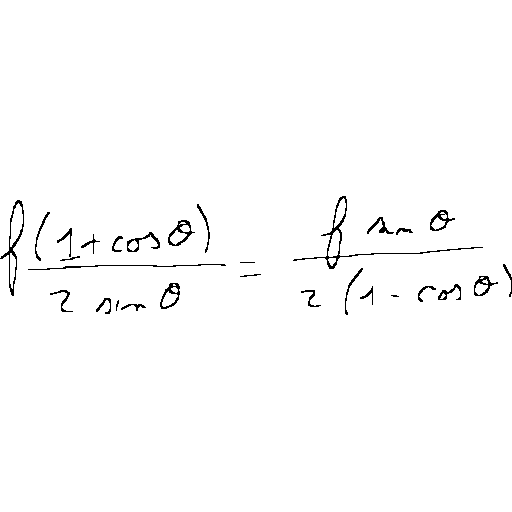 f(1+cosθ)/(2 sinθ) = f sinθ/(2(1-cosθ))